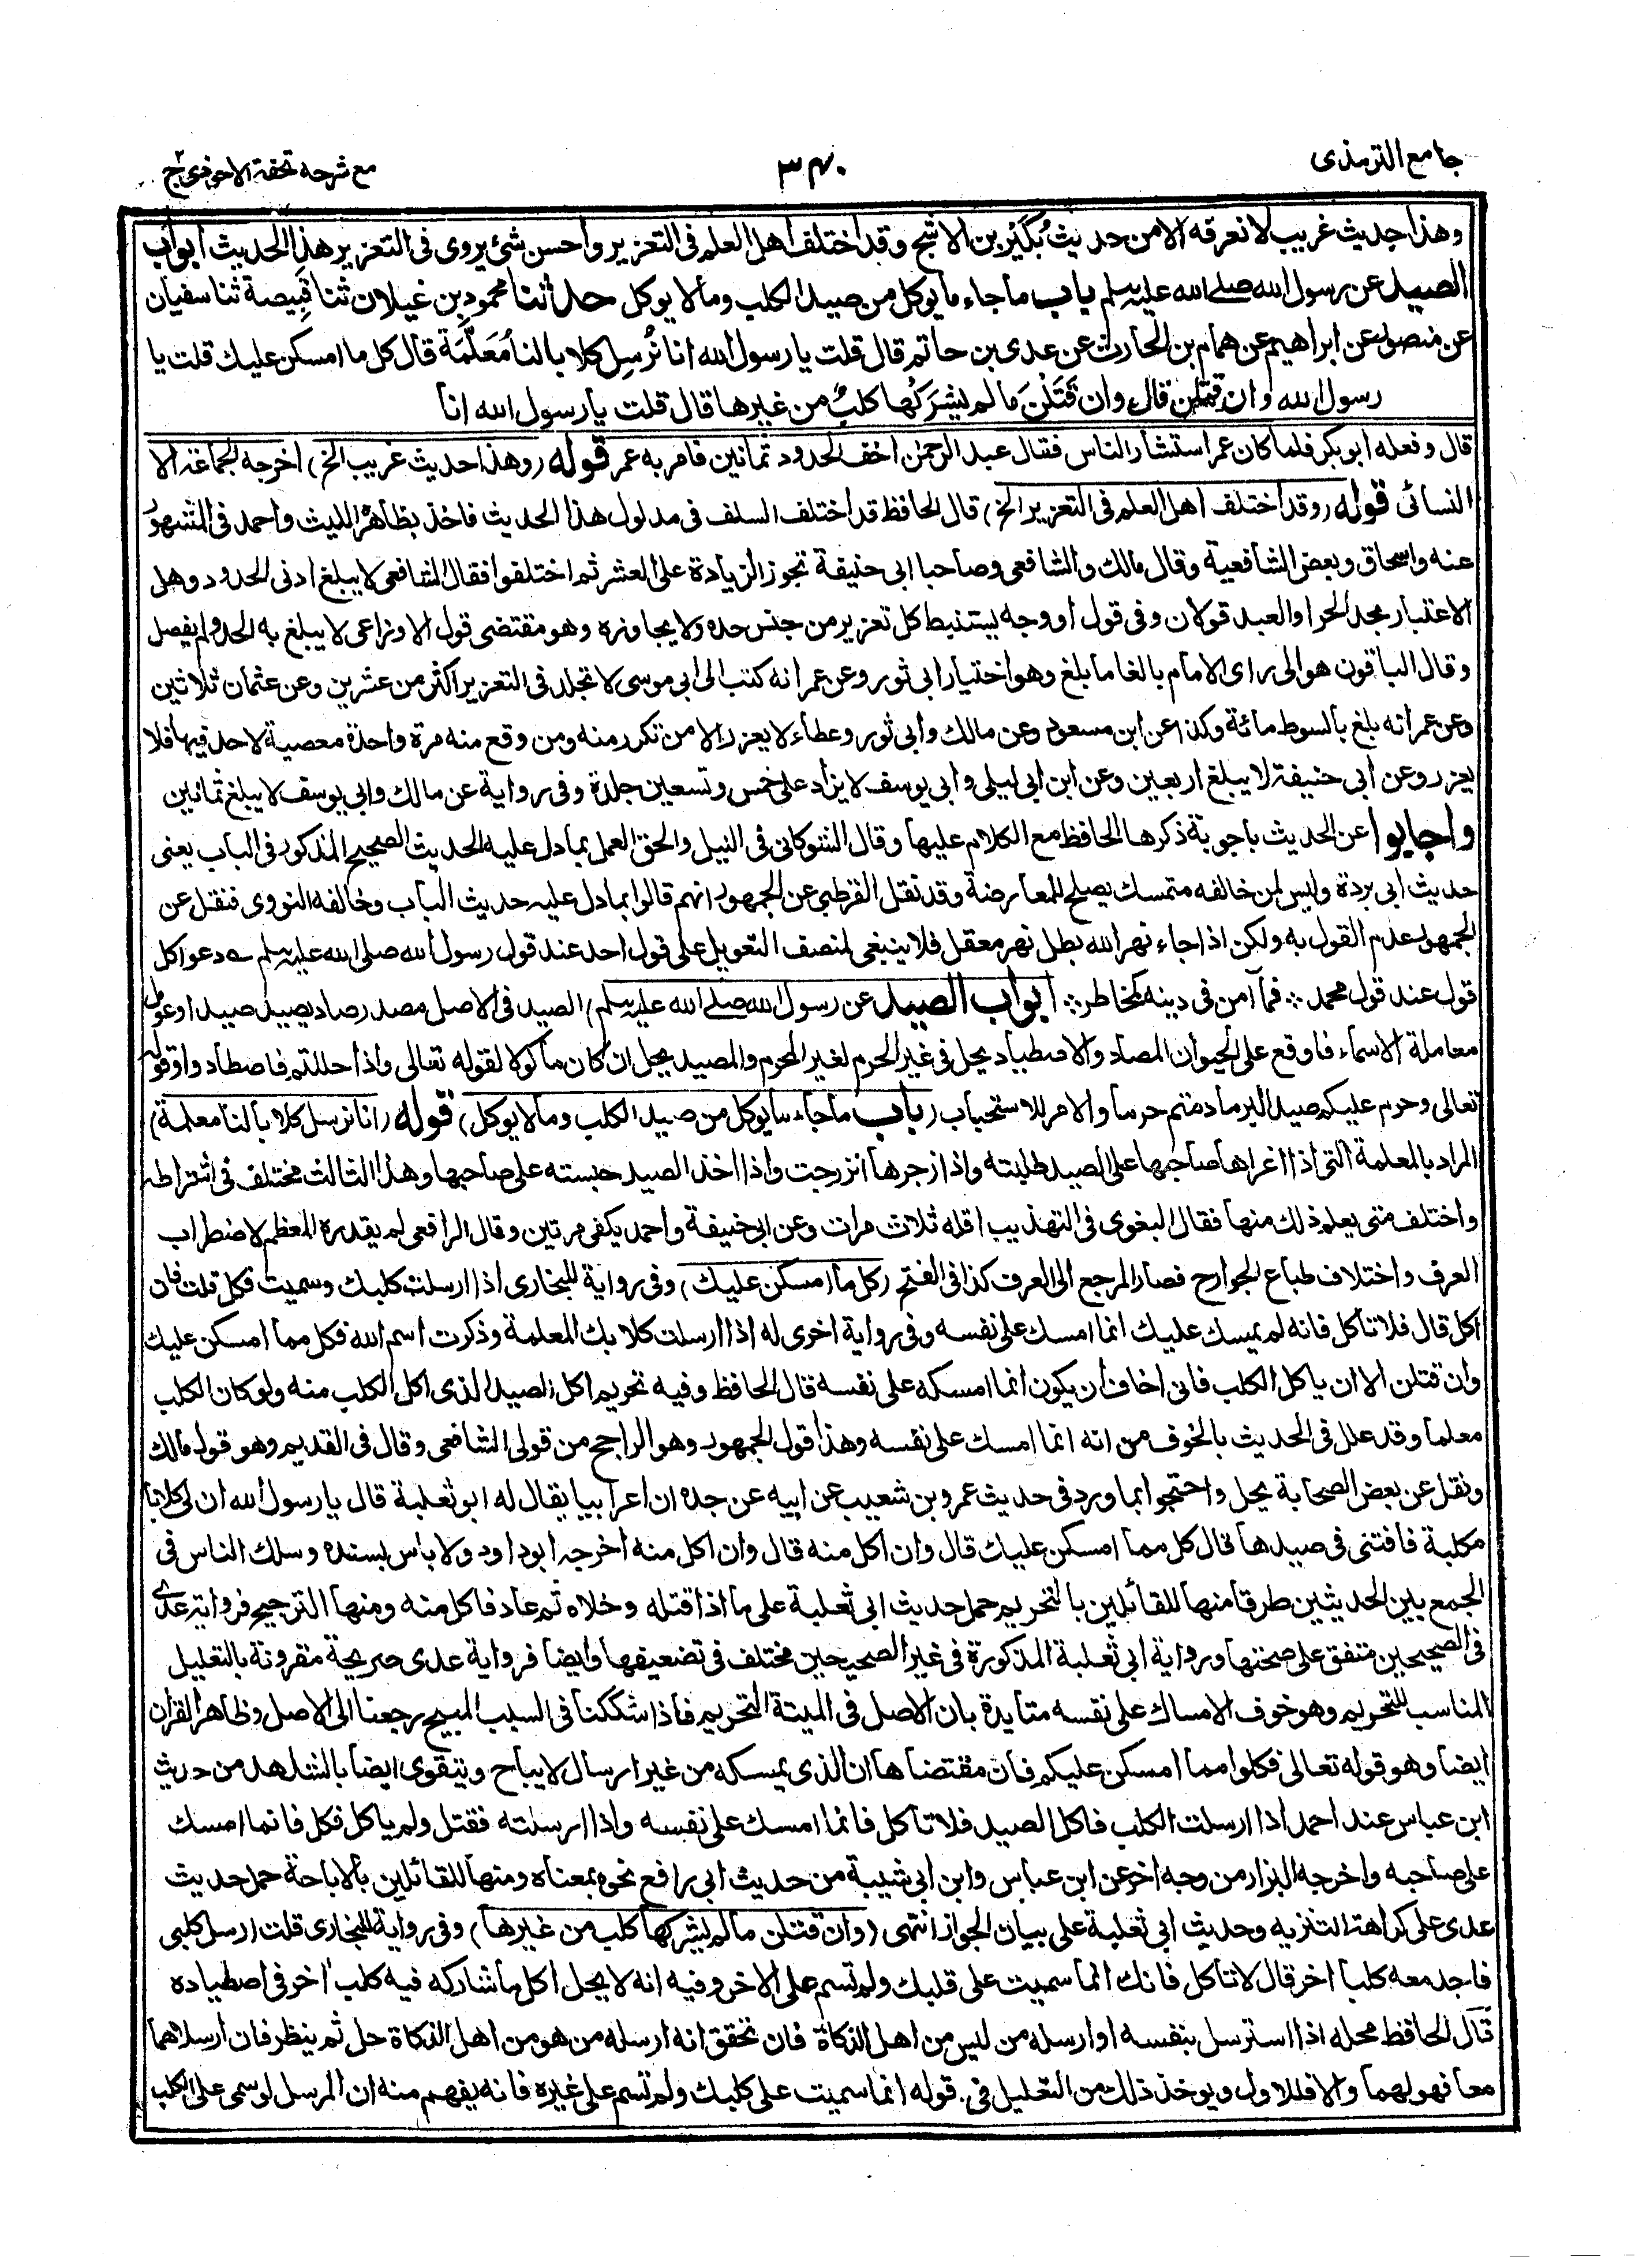 جامع الترمذى
٣٤٠
مع شرحه تحفة الاحوذى ج٢
وهذا حديث غريب لا نعرفه الا من حديث بُكَيْر بن الاشج وقد اختلف اهل العلم فى التعزير واحسن شئ يروى فى التعزير هذا الحديث ابواب
الصيد عن رسول الله صلى الله عليه وسلم باب ما جاء ما يوكل من صيد الكلب وما لا يوكل حدثنا محمود بن غيلان ثنا قَبِيصة ثنا سفيان
عن منصور عن ابراهيم عن همام بن الحارث عن عدى بن حاتم قال قلت يا رسول الله انا نُرْسِل كلابا لنا مُعَلَّمَة قال كل ما امسكن عليك قلت يا
رسول الله وان قتلن قال وان قَتَلْنَ ما لم يَشْرَكْها كلبٌ من غيرها قال قلت يا رسول الله انا
قال وفعله ابو بكر فلما كان عمر استشار الناس فقال عبد الرحمن اخف الحدود ثمانين فامر به عمر قوله (وهذا حديث غريب الخ) اخرجه الجماعة الا
النسائى قوله (وقد اختلف اهل العلم فى التعزير الخ) قال الحافظ قد اختلف السلف فى مدلول هذا الحديث فاخذ بظاهره الليث واحمد فى المشهور
عنه واسحاق وبعض الشافعية وقال مالك والشافعى وصاحبا ابى حنيفة تجوز الزيادة على العشر ثم اختلفوا فقال الشافعى لا يبلغ ادنى الحدود وهل
الاعتبار بحد الحر او العبد قولان وفى قول او وجه يستنبط كل تعزير من جنس حده ولا يجاوزه وهو مقتضى قول الاوزاعى لا يبلغ به الحد ولم يفصل
وقال الباقون هو الى راى الامام بالغا ما بلغ وهو اختيار ابى ثور وعن عمر انه كتب الى ابى موسى لا تجلد فى التعزير اكثر من عشرين وعن عثمان ثلاثين
وعن عمر انه بلغ بالسوط مائة وكذا عن ابن مسعود وعن مالك وابى ثور وعطاء لا يعزر الا من تكرر منه ومن وقع منه مرة واحدة معصية لا حد فيها فلا
يعزر وعن ابى حنيفة لا يبلغ اربعين وعن ابن ابى ليلى وابى يوسف لا يزاد على خمس وتسعين جلدة وفى رواية عن مالك وابى يوسف لا يبلغ ثمانين
واجابوا عن الحديث باجوبة ذكرها الحافظ مع الكلام عليها وقال الشوكانى فى النيل والحق العمل بما دل عليه الحديث الصحيح المذكور فى الباب يعنى
حديث ابى بردة وليس لمن خالفه متمسك يصلح للمعارضة وقد نقل القرطبى عن الجمهور انهم قالوا بما دل عليه حديث الباب وخالفه النووى فنقل عن
الجمهور عدم القول به ولكن اذا جاء نهر الله بطل نهر معقل فلا ينبغى لمنصف التعويل على قول احد عند قول رسول الله صلى الله عليه وسلم ـه دعوا كل
قول عند قول محمد ؞ فما آمن فى دينه كمخاطر ؞ ابواب الصيد عن رسول الله صلى الله عليه وسلم) الصيد فى الاصل مصدر صاد يصيد صيدا وعومل
معاملة الاسماء فاوقع على الحيوان المصاد والاصطياد يحل فى غير الحرم لغير المحرم والمصيد يحل ان كان ماكولا لقوله تعالى واذا حللتم فاصطادوا وقوله
تعالى وحرم عليكم صيد البر ما دمتم حرما والامر للاستحباب (باب ما جاء ما يوكل من صيد الكلب وما لا يوكل) قوله (انا نرسل كلابا لنا معلمة)
المراد بالمعلمة التى اذا اغراها صاحبها على الصيد طلبته واذا زجرها انزجرت واذا اخذ الصيد حبسته على صاحبها وهذا الثالث مختلف فى اشتراطه
واختلف متى يعلم ذلك منها فقال البغوى فى التهذيب اقله ثلاث مرات وعن ابى حنيفة واحمد يكفى مرتين وقال الرافعى لم يقدره المعظم لاضطراب
العرف واختلاف طباع الجوارح فصار المرجع الى العرف كذا فى الفتح (كل ما امسكن عليك) وفى رواية للبخارى اذا ارسلت كلبك وسميت فكل قلت فان
اكل قال فلا تاكل فانه لم يمسك عليك انما امسك على نفسه وفى رواية اخرى له اذا ارسلت كلابك المعلمة وذكرت اسم الله فكل مما امسكن عليك
وان قتلن الا ان ياكل الكلب فانى اخاف ان يكون انما امسكه على نفسه قال الحافظ وفيه تحريم اكل الصيد الذى اكل الكلب منه ولو كان الكلب
معلما وقد علل فى الحديث بالخوف من انه انما امسك على نفسه وهذا قول الجمهور وهو الراجح من قولى الشافعى وقال فى القديم وهو قول مالك
ونقل عن بعض الصحابة يحل واحتجوا بما ورد فى حديث عمرو بن شعيب عن ابيه عن جده ان اعرابيا يقال له ابو ثعلبة قال يا رسول الله ان لى كلابا
مكلبة فافتنى فى صيدها قال كل مما امسكن عليك قال وان اكل منه قال وان اكل منه اخرجه ابو داود ولا باس بسنده وسلك الناس فى
الجمع بين الحديثين طرقا منها للقائلين بالتحريم حمل حديث ابى ثعلبة على ما اذا قتله وخلاه ثم عاد فاكل منه ومنها الترجيح فرواية عدى
فى الصحيحين متفق على صحتها ورواية ابى ثعلبة المذكورة فى غير الصحيحين مختلف فى تضعيفها وايضا فرواية عدى صريحة مقرونة بالتعليل
المناسب للتحريم وهو خوف الامساك على نفسه متايدة بان الاصل فى الميتة التحريم فاذا شككنا فى السبب المبيح رجعنا الى الاصل وظاهر القران
ايضا وهو قوله تعالى فكلوا مما امسكن عليكم فان مقتضاها ان الذى يمسكه من غير ارسال لا يباح ويتقوى ايضا بالشاهد من حديث
ابن عباس عند احمد اذا ارسلت الكلب فاكل الصيد فلا تاكل فانما امسك على نفسه واذا ارسلته فقتل ولم ياكل فكل فانما امسك
على صاحبه واخرجه البزار من وجه اخر عن ابن عباس وابن ابى شيبة من حديث ابى رافع نحوه بمعناه ومنها للقائلين بالاباحة حمل حديث
عدى على كراهة التنزيه وحديث ابى ثعلبة على بيان الجواز انتهى (وان قتلن ما لم يشركها كلب من غيرها) وفى رواية للبخارى قلت ارسل كلبى
فاجد معه كلبا اخر قال لا تاكل فانك انما سميت على قلبك ولم تسم على الاخر وفيه انه لا يحل اكل ما شاركه فيه كلب اخر فى اصطياده
قال الحافظ محله اذا استرسل بنفسه او ارسله من ليس من اهل الذكاة فان تحقق انه ارسله من هو من اهل الذكاة حل ثم ينظر فان ارسلاهما
معا فهو لهما والا فللاول ويوخذ ذلك من التعليل فى قوله انما سميت على كلبك ولم تسم على غيره فانه يفهم منه ان المرسل لو سمى على الكلب